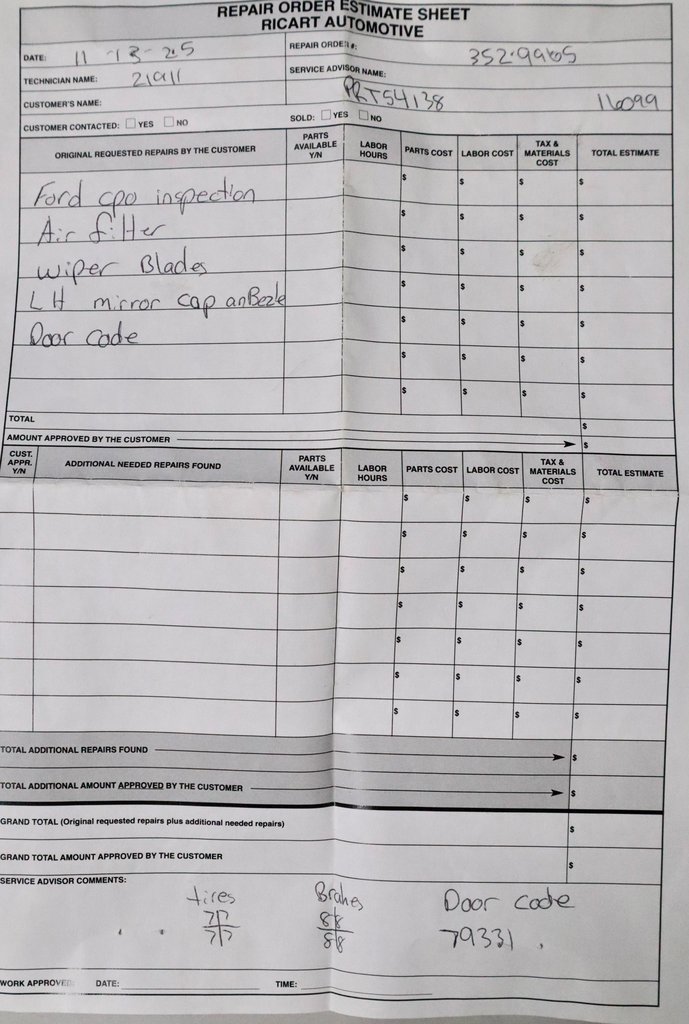 REPAIR ORDER ESTIMATE SHEET
RICART AUTOMOTIVE
DATE: 11-13-25
REPAIR ORDER#: 352-9965
TECHNICIAN NAME: 21911
SERVICE ADVISOR NAME:
CUSTOMER'S NAME:
PRT54138 16099
CUSTOMER CONTACTED: YES NO
SOLD: YES NO
ORIGINAL REQUESTED REPAIRS BY THE CUSTOMER PARTS AVAILABLE Y/N LABOR HOURS PARTS COST LABOR COST TAX & MATERIALS COST TOTAL ESTIMATE
Ford cpo inspection $ $ $ $
Air filter $ $ $ $
wiper Blades $ $ $ $
LH mirror cap an Bezle $ $ $ $
Door code $ $ $ $
$ $ $ $
$ $ $ $
TOTAL $
AMOUNT APPROVED BY THE CUSTOMER $
CUST. APPR. Y/N ADDITIONAL NEEDED REPAIRS FOUND PARTS AVAILABLE Y/N LABOR HOURS PARTS COST LABOR COST TAX & MATERIALS COST TOTAL ESTIMATE
$ $ $ $
$ $ $ $
$ $ $ $
$ $ $ $
$ $ $ $
$ $ $ $
$ $ $ $
TOTAL ADDITIONAL REPAIRS FOUND $
TOTAL ADDITIONAL AMOUNT APPROVED BY THE CUSTOMER $
GRAND TOTAL (Original requested repairs plus additional needed repairs) $
GRAND TOTAL AMOUNT APPROVED BY THE CUSTOMER $
SERVICE ADVISOR COMMENTS:
tires Brakes Door code
7|7 8|8 79331
7|7 8|8
WORK APPROVED: DATE: TIME: